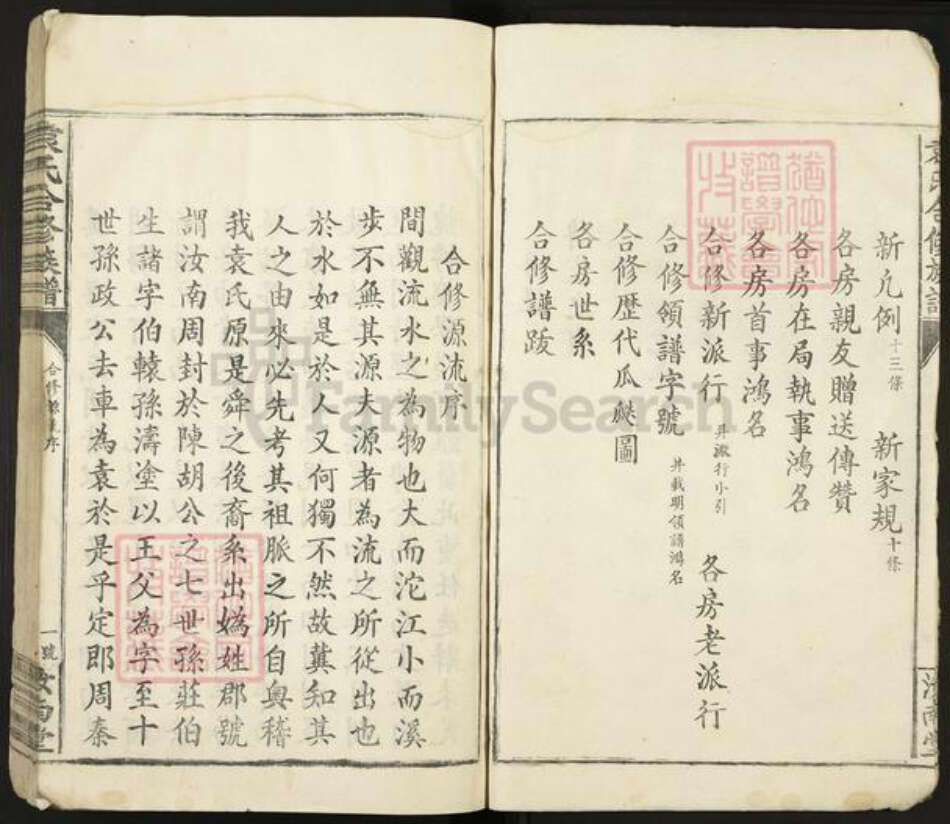 新凡例十三條 新家規十條
各房親友贈送傳贊
各房在局執事鴻名
各房首事鴻名
合修新派行 并派行小引 各房老派行
合修領譜字號 并載明領譜鴻名
合修歷代瓜瓞圖
各房世系
合修譜跋
汝南堂
合修源流序
間觀流水之為物也大而沱江小而溪
步不無其源夫源者為流之所從出也
於水如是於人又何獨不然故冀知其
人之由來必先考其祖脈之所自奥稽
我袁氏原是舜之後裔系出媯姓郡號
謂汝南周封於陳胡公之七世孫莊伯
生諸字伯轅孫濤塗以王父為字至十
世孫政公去車為袁於是乎定郎周秦
袁氏合修族譜
一號
汝南堂
FamilySearch